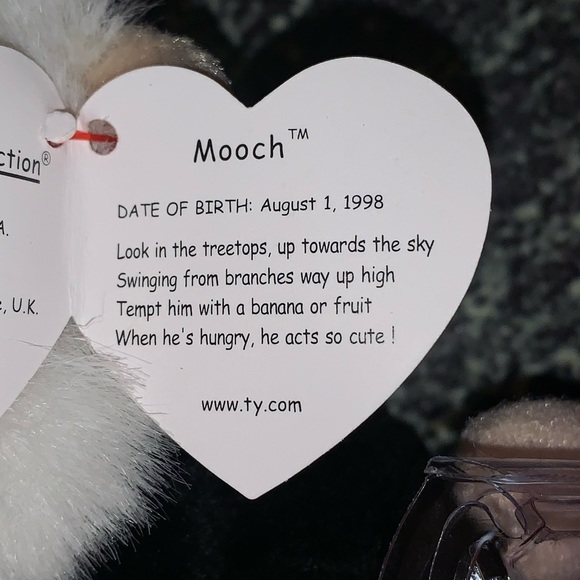 ction®
A.
, U.K.
Mooch™
DATE OF BIRTH: August 1, 1998
Look in the treetops, up towards the sky
Swinging from branches way up high
Tempt him with a banana or fruit
When he's hungry, he acts so cute !
www.ty.com